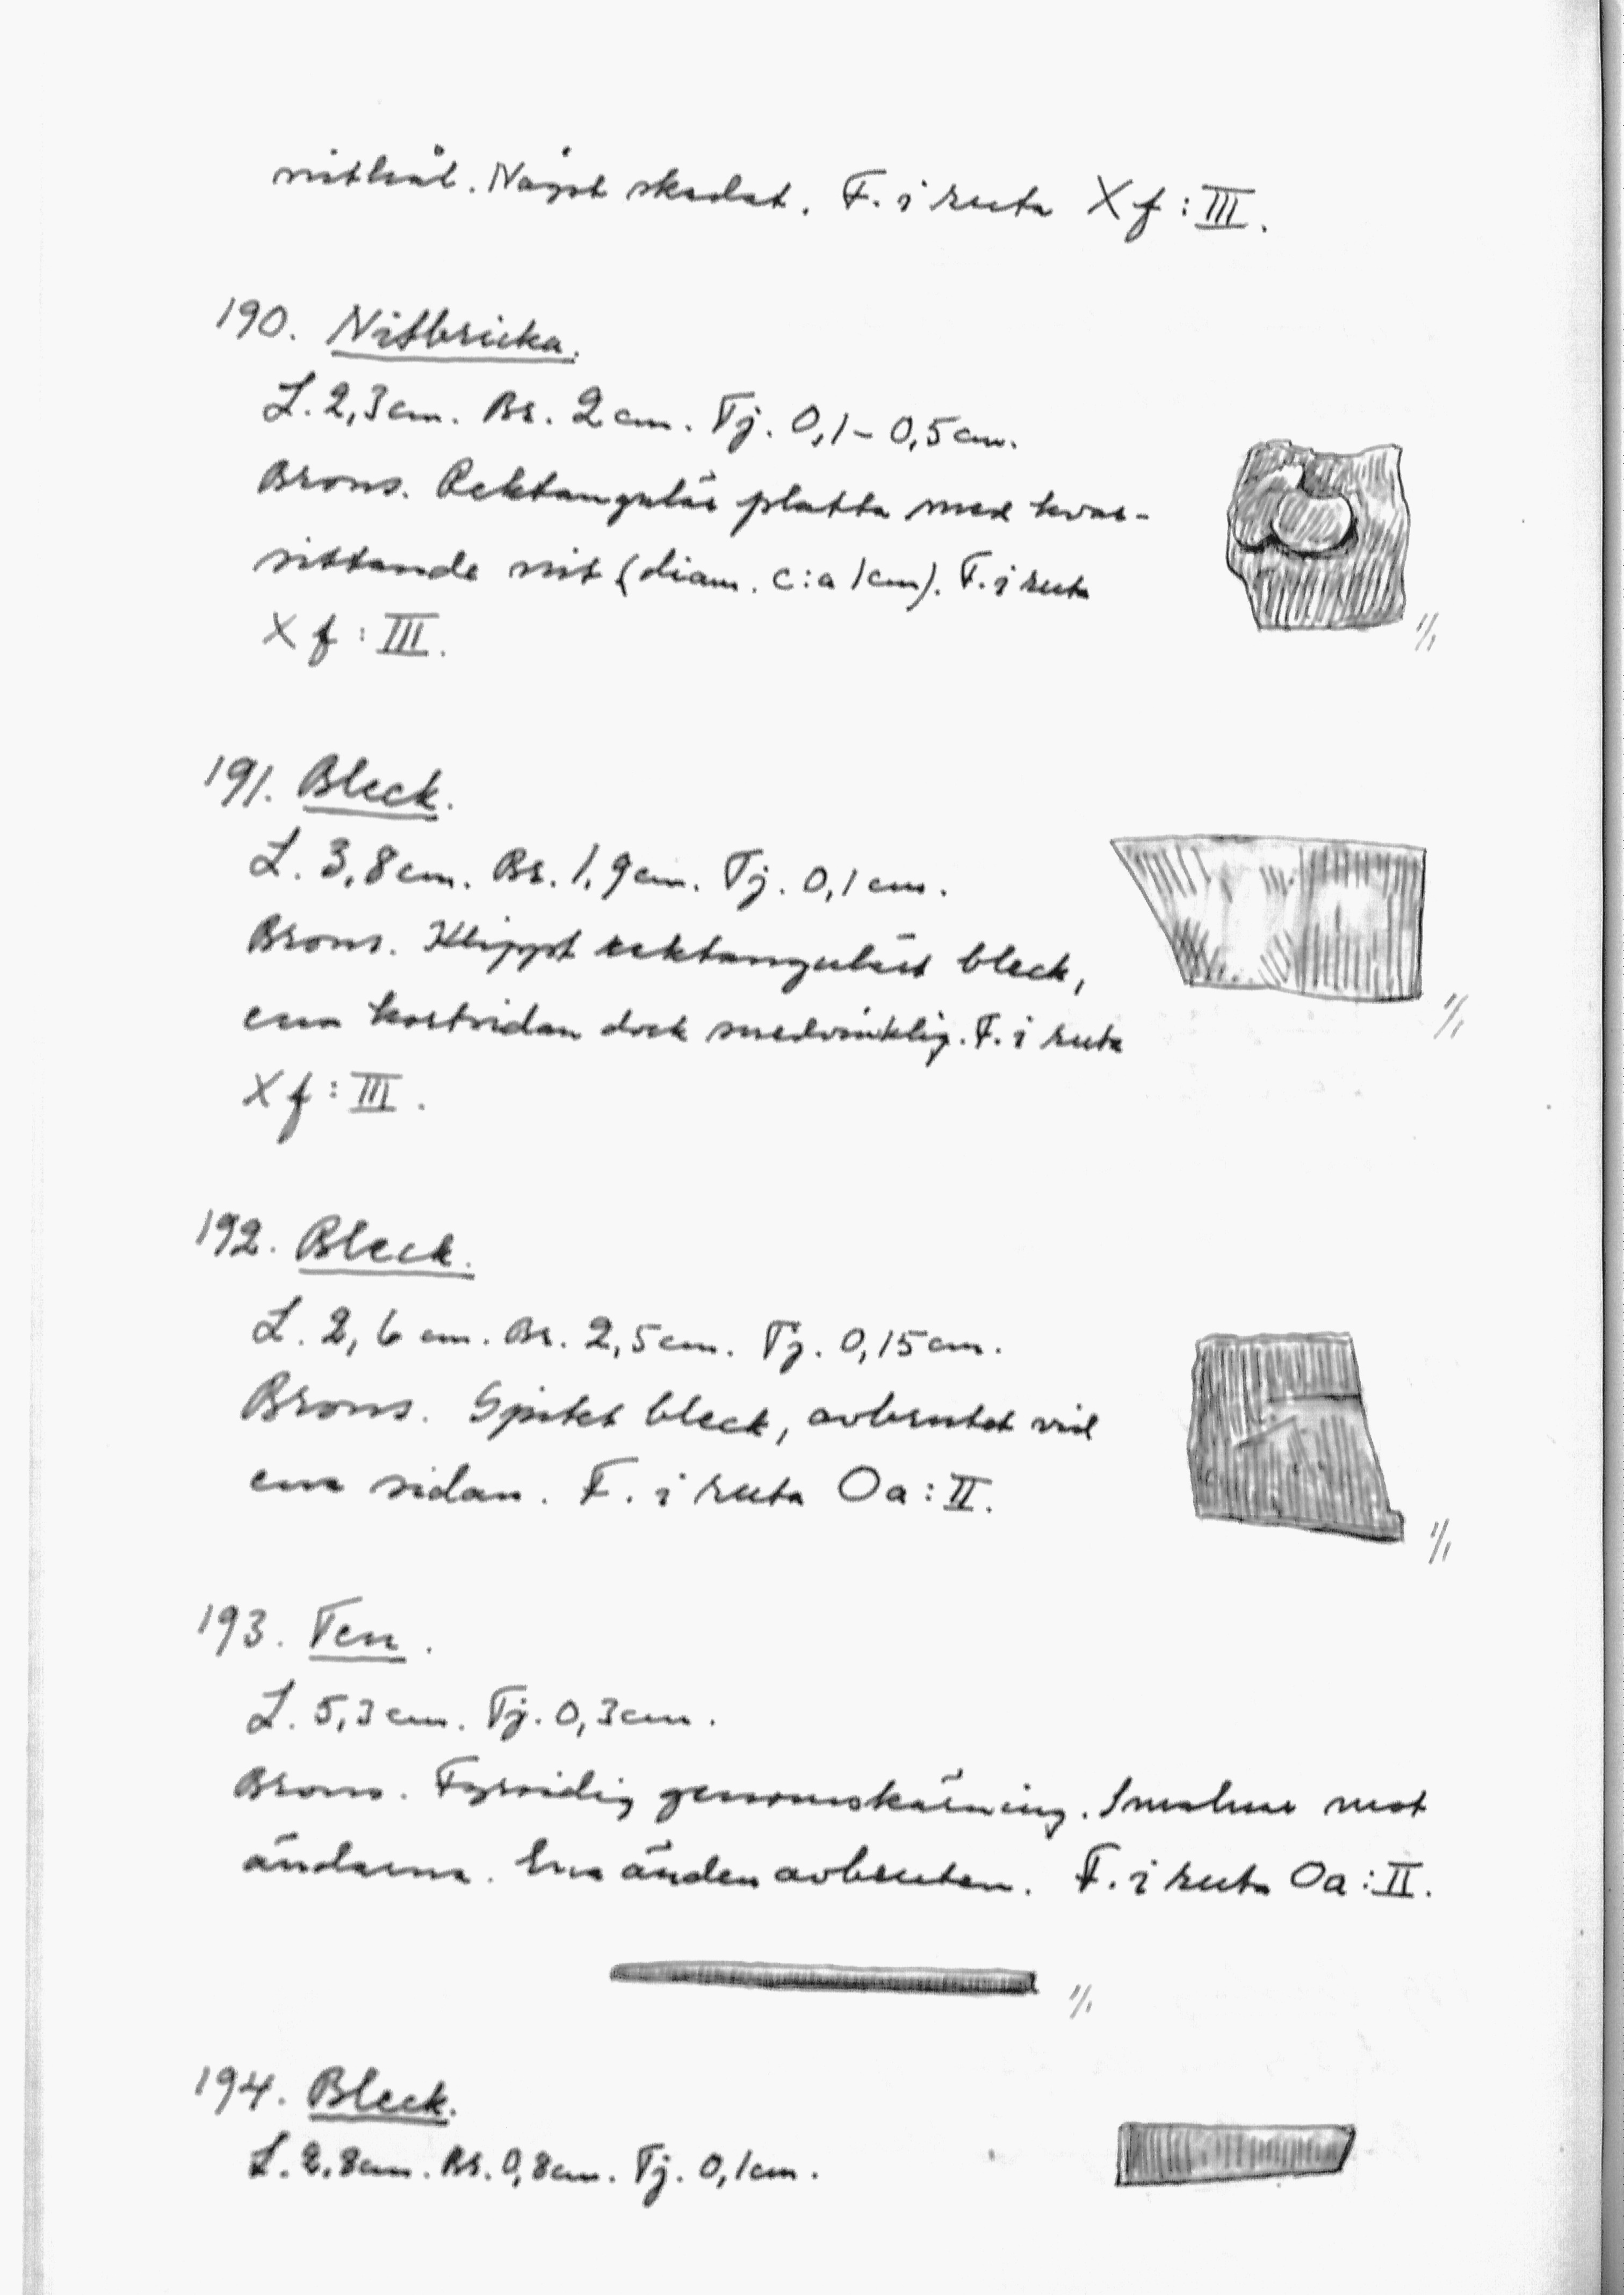 nithål. Något skadat. F. i ruta X f : III.
190. Nitbricka.
L. 2,3 cm. Br. 2 cm. Tj. 0,1 - 0,5 cm.
Brons. Rektangulär platta med kvar-
sittande nit (diam. c:a 1 cm). F. i ruta
X f : III.
1/1
191. Bleck.
L. 3,8 cm. Br. 1,9 cm. Tj. 0,1 cm.
Brons. Klippt rektangulärt bleck,
ena kortsidan dock snedvinklig. F. i ruta
X f : III.
1/1
192. Bleck.
L. 2,6 cm. Br. 2,5 cm. Tj. 0,15 cm.
Brons. bleck, avbrutet vid
ena sidan. F. i ruta Oa : II.
1/1
193. Ten.
L. 5,3 cm. Tj. 0,3 cm.
Brons. Fyrsidig genomskärning. Smalnar mot
ändarna. Ena änden avbruten. F. i ruta Oa : II.
1/1
194. Bleck.
L. 2,8 cm. Br. 0,8 cm. Tj. 0,1 cm.